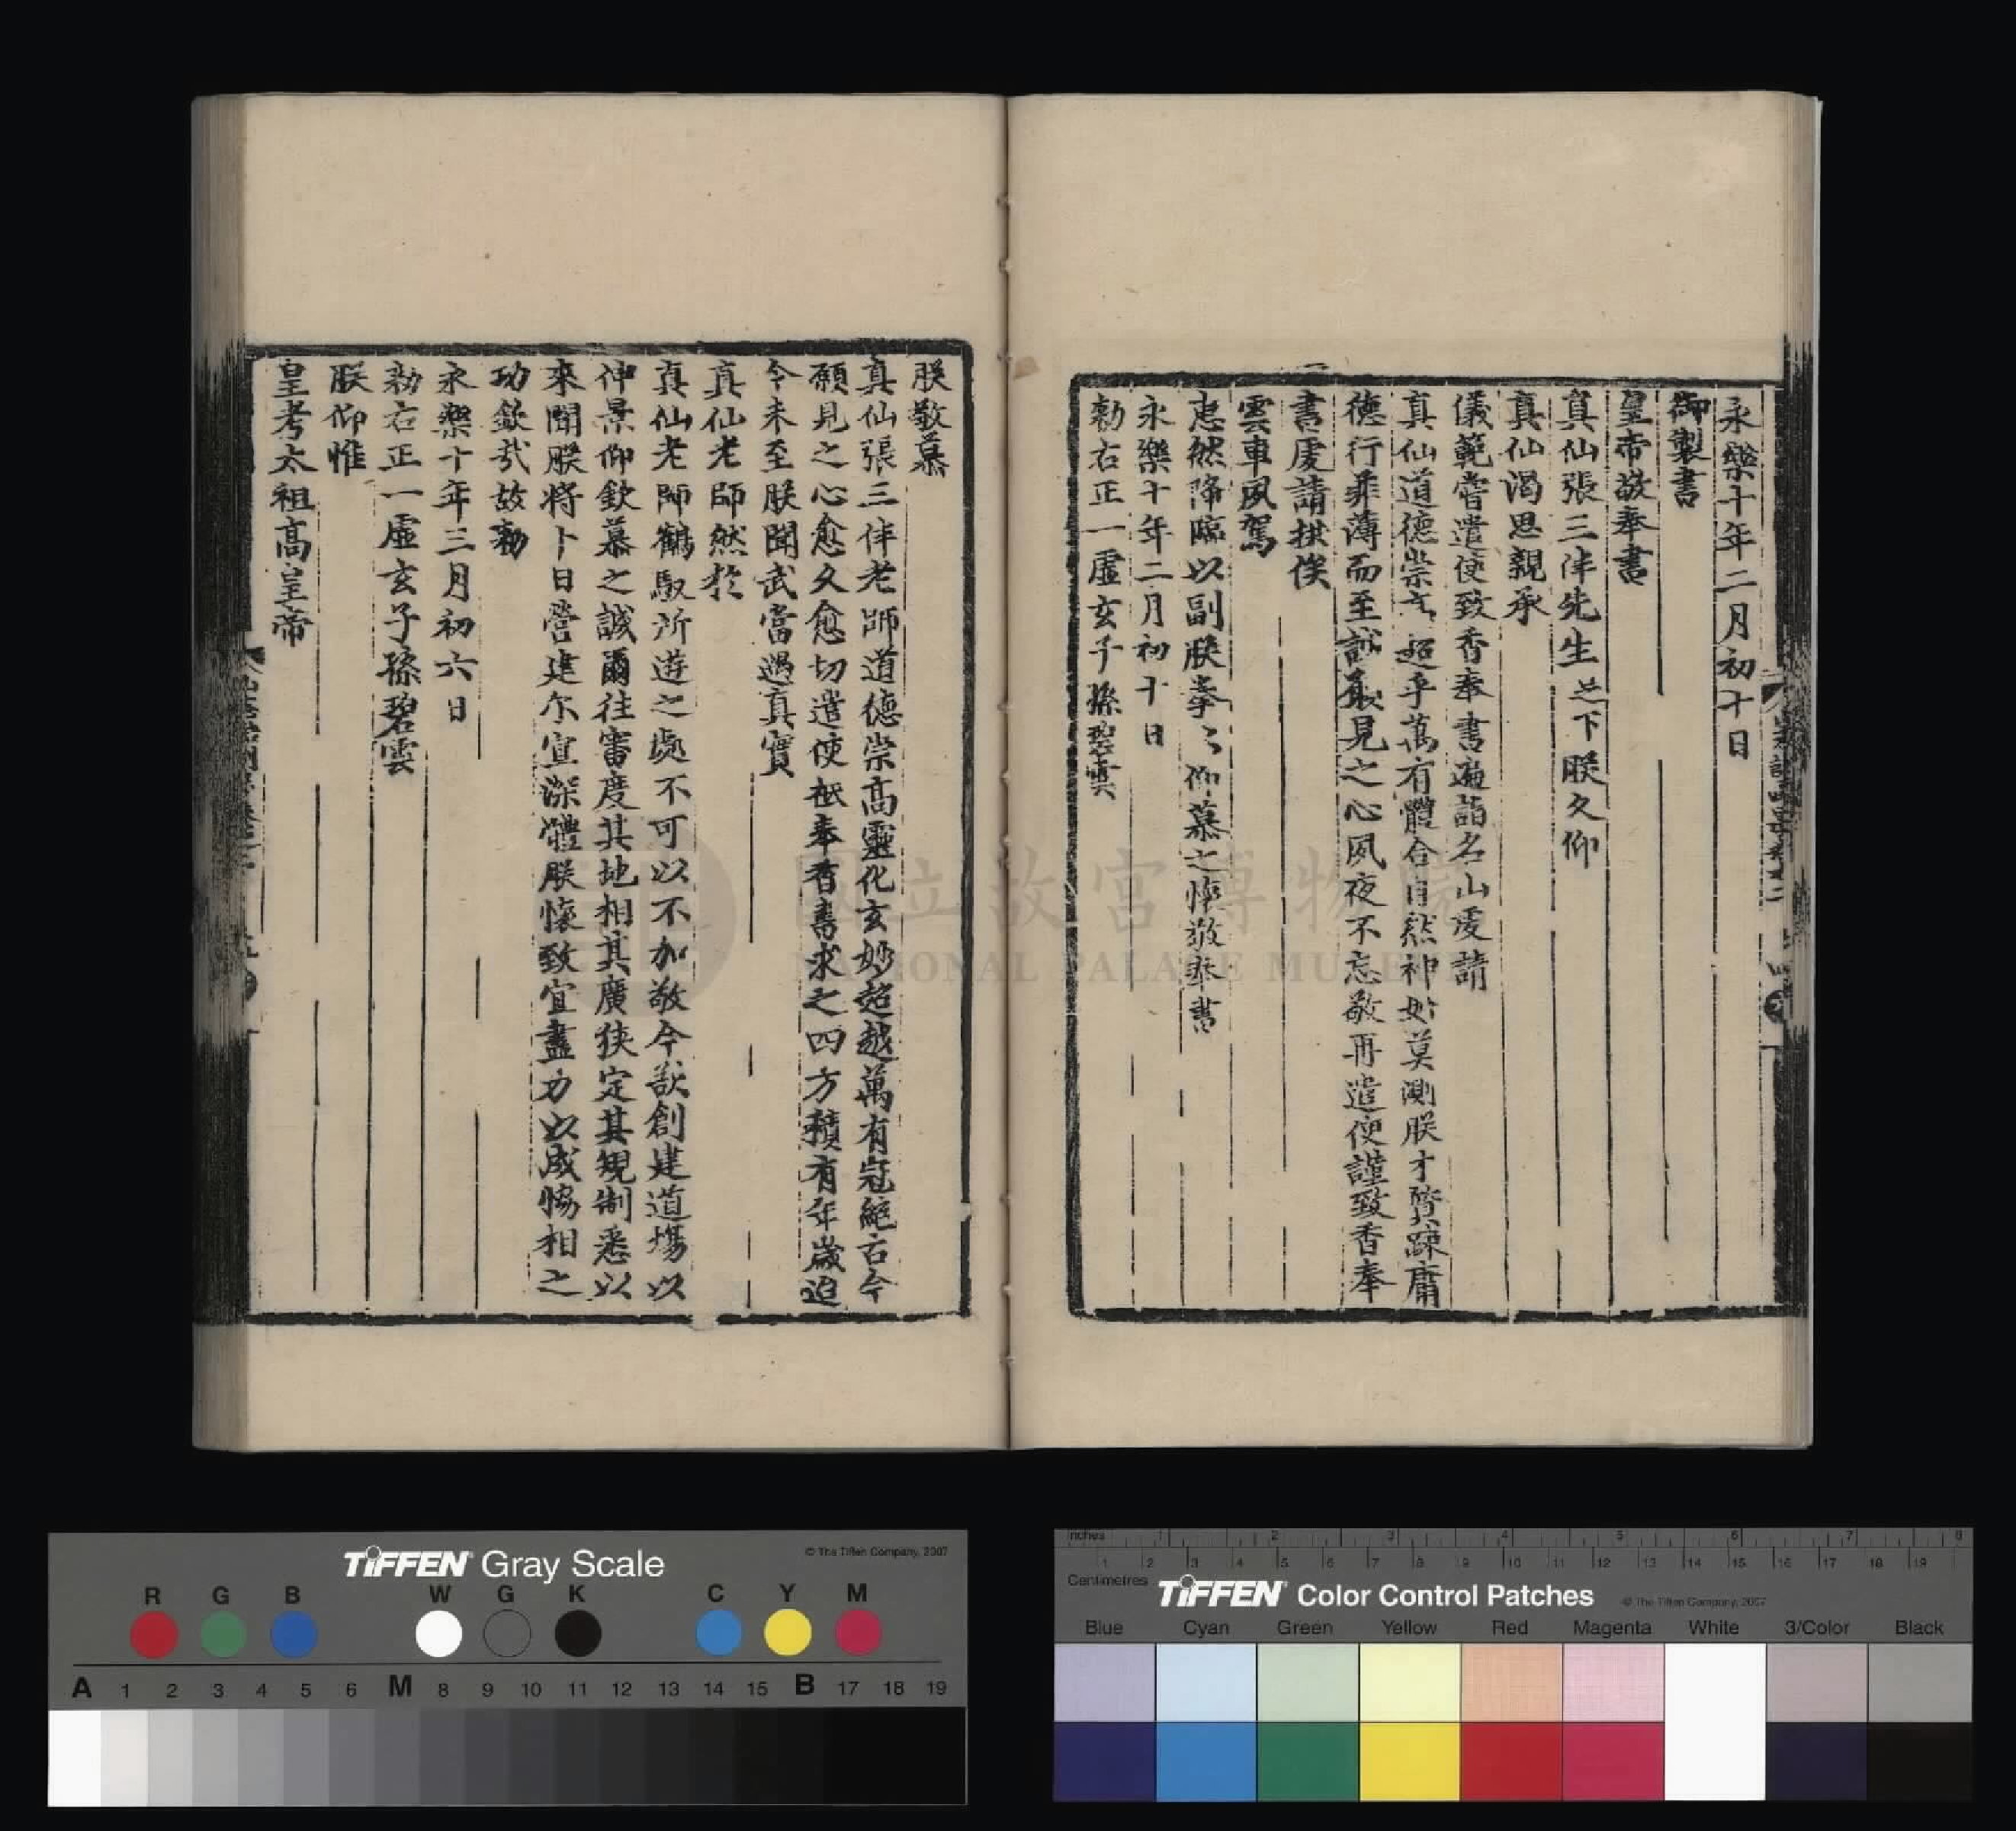 永樂十年二月初十日
御製書
皇帝敬奉書
真仙張三丰先生足下朕久仰
真仙渴思親承
儀範嘗遣使致香奉書遍詣名山虔請
真仙道德崇高超乎萬有體合自然神妙莫測朕才質疎庸
德行菲薄而至誠願見之心夙夜不忘敬再遣使謹致香奉
書虔請拱俟
雲車夙駕
惠然降臨以副朕拳〻仰慕之懷敬奉書
永樂十年二月初十日
勅右正一虛玄子孫碧雲
朕敬慕
真仙張三丰老師道德崇高靈化玄妙超越萬有冠絕古今
願見之心愈久愈切遣使祗奉香書求之四方積有年歲迨
今未至朕聞武當遇真實
真仙老師然於
真仙老師鶴馭所遊之處不可以不加敬今欲創建道場以
伸景仰欽慕之誠爾往審度其地相其廣狹定其規制悉以
來聞朕將卜日營建尓宜深體朕懷致宜盡力以成協相之
功欽哉故勅
永樂十年三月初六日
勅右正一虛玄子孫碧雲
朕仰惟
皇考太祖高皇帝
國立故宮博物院
NATIONAL PALACE MUSEUM
TIFFEN Gray Scale
© The Tiffen Company, 2007
R G B W G K C Y M
A 1 2 3 4 5 6 M 8 9 10 11 12 13 14 15 B 17 18 19
Inches 1 2 3 4 5 6 7 8
1 2 3 4 5 6 7 8 9 10 11 12 13 14 15 16 17 18 19
Centimetres
TIFFEN Color Control Patches
© The Tiffen Company, 2007
Blue Cyan Green Yellow Red Magenta White 3/Color Black